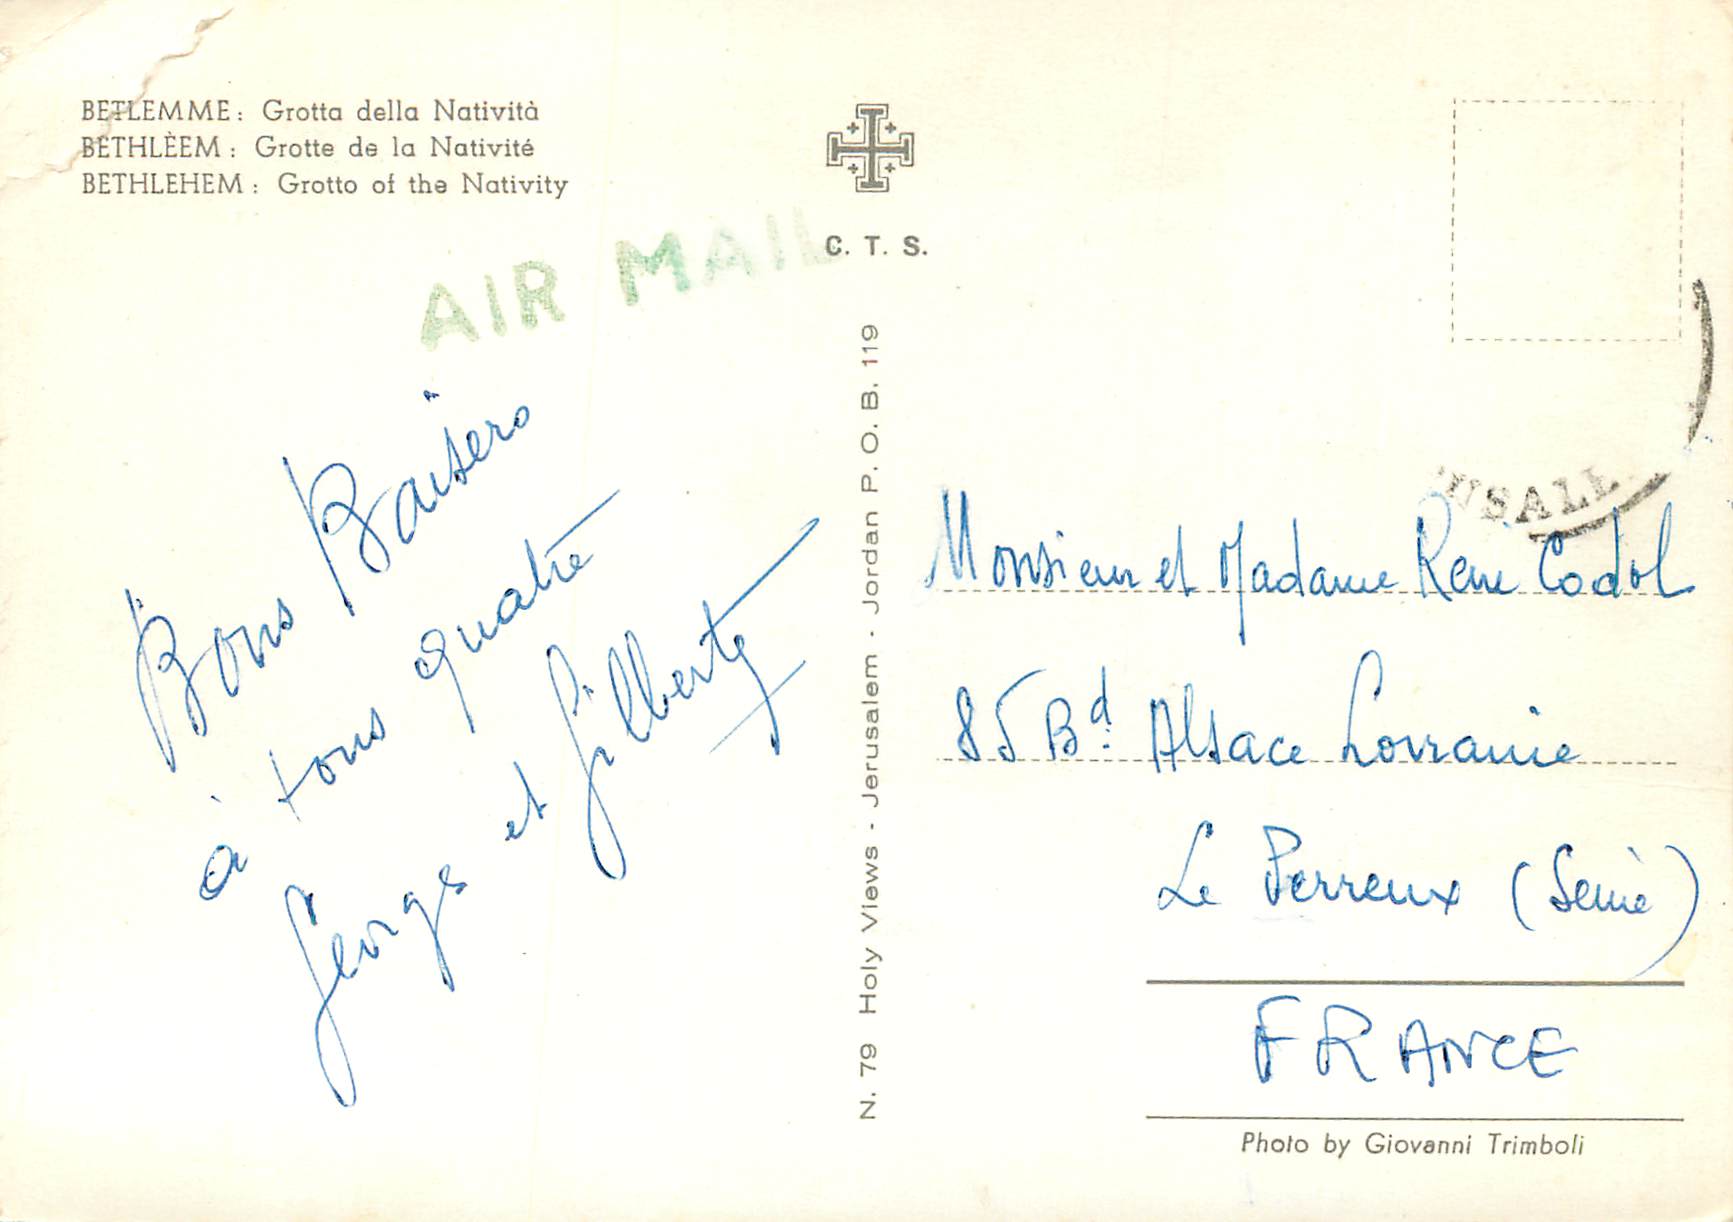 BETLEMME: Grotta della Natività
BETHLÈEM: Grotte de la Nativité
BETHLEHEM: Grotto of the Nativity
C. T. S.
AIR MAIL
Bons Baisers
à tous quatre
Georges et Gilberte
N. 79 Holy Views - Jerusalem - Jordan P. O. B. 119
USALE
Monsieur et Madame René Codol
85 Bd. Alsace Lorraine
Le Perreux (Seine)
FRANCE
Photo by Giovanni Trimboli